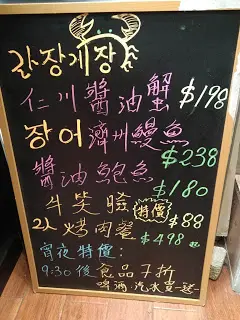 간장게장
仁川醬油蟹 $198
장어 濟州鰻魚 $238
醬油鮑魚 $180
牛奘臉 特價 $88
2人烤肉餐 $498起
宵夜特價:
9:30後食品7折
啤酒汽水買一送一